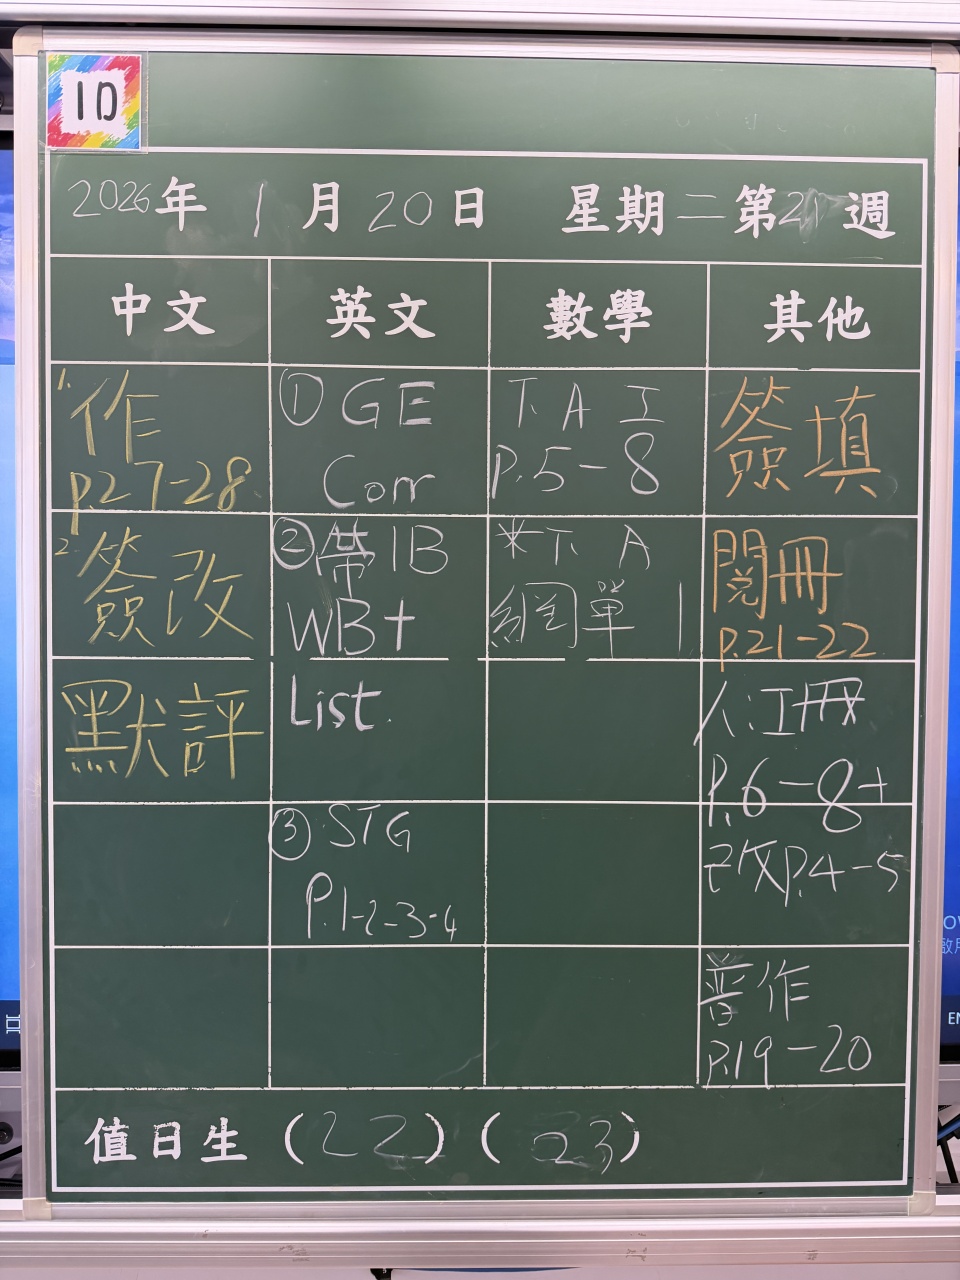 1D
2026年 1月20日 星期二第21週
中文 英文 數學 其他
1. 作
p.27-28
2. 簽改
默評
① GE
Corr
② 帶IB
WB+
List
③ STG
P.1-2-3-4
下 A 工
P.5-8
*下 A
網單 1
簽填
閱冊
p.21-22
人工冊
P.6-8+
改P.4-5
普作
P.19-20
值日生 (22) (23)
EN